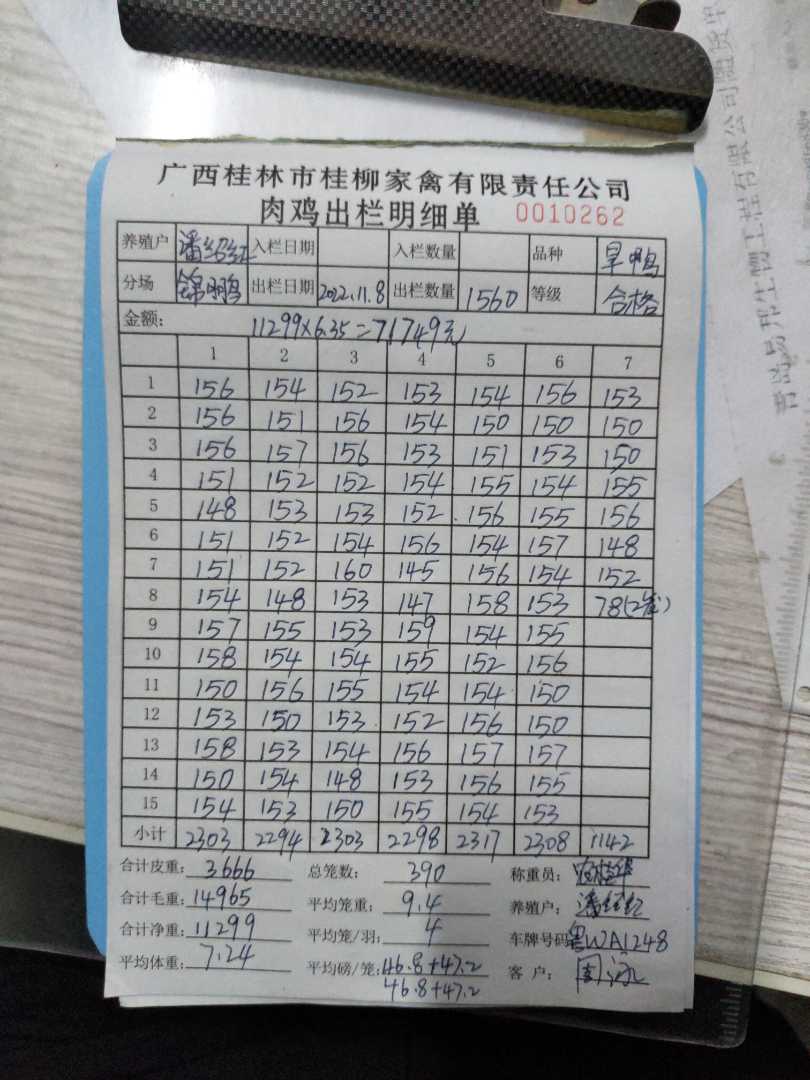 广西桂林市桂柳家禽有限责任公司
肉鸡出栏明细单 0010262
养殖户 潘绍红 入栏日期 入栏数量 品种 旱鸭
分场 锦鹏 出栏日期 2022.11.8 出栏数量 1560 等级 合格
金额: 11299×6.35=71749元
1 2 3 4 5 6 7
1 156 154 152 153 154 156 153
2 156 151 156 154 150 150 150
3 156 157 156 153 151 153 150
4 151 152 152 154 155 154 155
5 148 153 153 152 156 155 156
6 151 152 154 156 154 157 148
7 151 152 160 145 156 154 152
8 154 148 153 147 158 153 78(2笼)
9 157 155 153 159 154 155
10 158 154 154 155 152 156
11 150 156 155 154 154 150
12 153 150 153 152 156 150
13 158 153 154 156 157 157
14 150 154 148 153 156 155
15 154 153 150 155 154 153
小计 2303 2294 2303 2298 2317 2308 1142
合计皮重: 3666 总笼数: 390 称重员:
合计毛重: 14965 平均笼重: 9.4 养殖户: 潘绍红
合计净重: 11299 平均笼/羽: 4 车牌号码 粤WA1248
平均体重: 7.24 平均磅/笼: 46.8+47.2 客户:
46.8+47.2